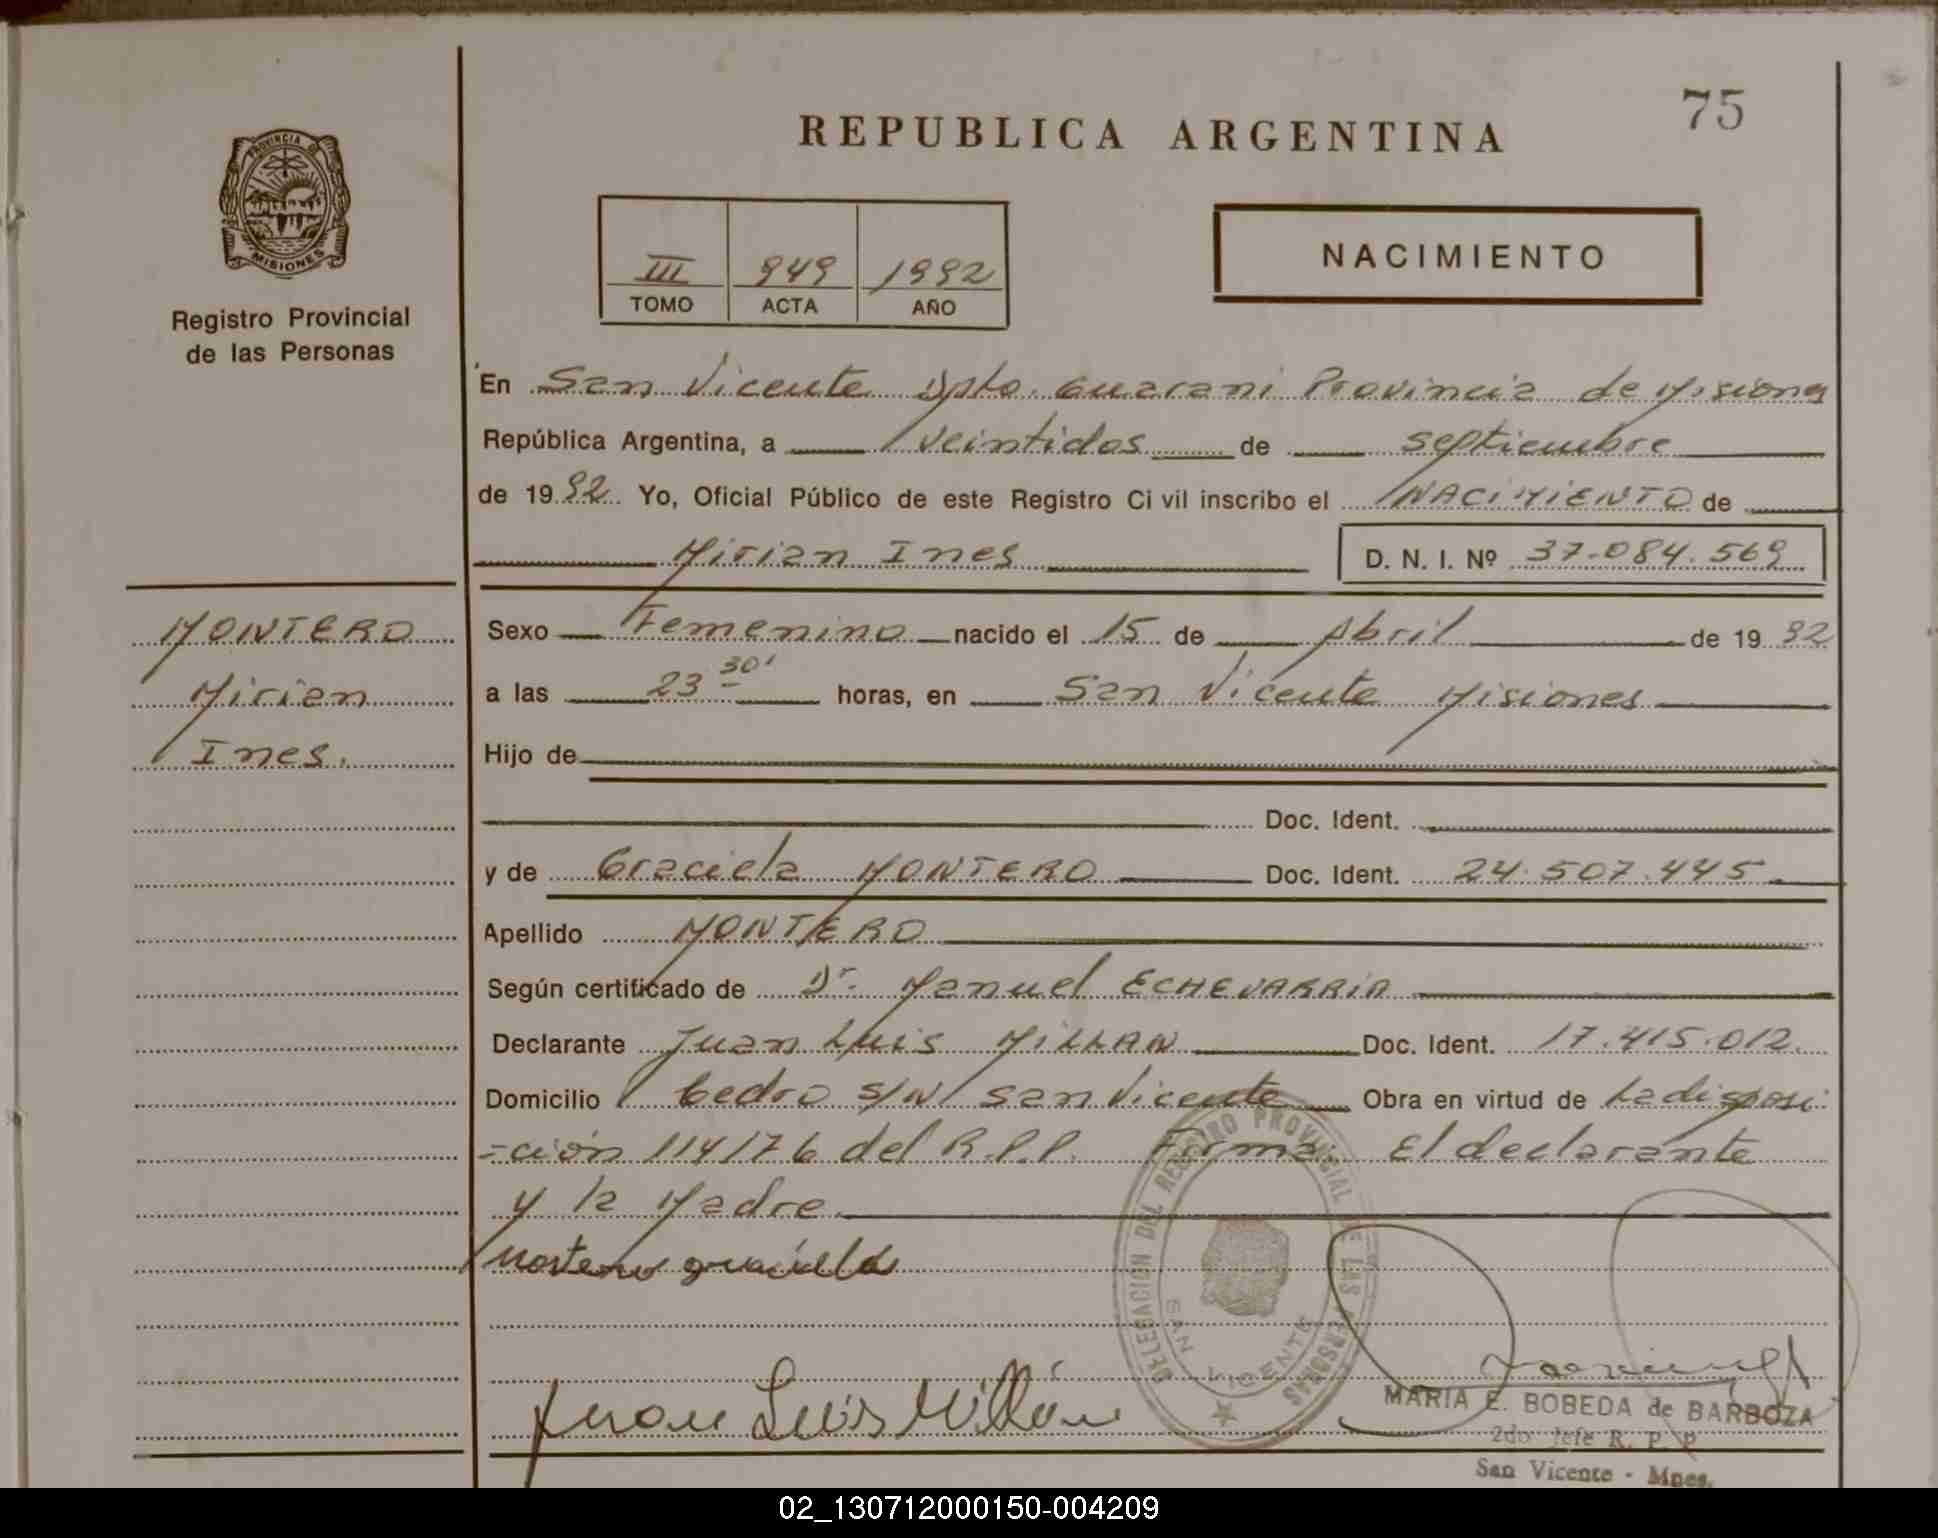 75
REPUBLICA ARGENTINA
PROVINCIA DE
MISIONES
Registro Provincial
de las Personas
III 949 1992
TOMO ACTA AÑO
NACIMIENTO
En San Vicente Dpto. Guarani Provincia de Misiones
República Argentina, a veintidos de septiembre
de 1992 Yo, Oficial Público de este Registro Civil inscribo el NACIMIENTO de
Mirian Ines D. N. I. Nº 37.084.569
MONTERO
Mirian
Ines.
Sexo Femenino nacido el 15 de Abril de 1992
a las 23 30' horas, en San Vicente Misiones
Hijo de
Doc. Ident.
y de Graciela MONTERO Doc. Ident. 24.507.445
Apellido MONTERO
Según certificado de Dr. Manuel ECHEVARRIA
Declarante Juan Luis MILLAN Doc. Ident. 17.415.012.
Domicilio Cedro S/N San Vicente Obra en virtud de La disposi-
-ción 114/76 del R.P.P. Firma El declarante
y la Madre
Montero graciela
DELEGACION DEL REGISTRO PROVINCIAL DE LAS PERSONAS
SAN VICENTE
Juan Luis Millán
MARIA E. BOBEDA de BARBOZA
2do Jefe R. P. P.
San Vicente - Mnes.
02_130712000150-004209